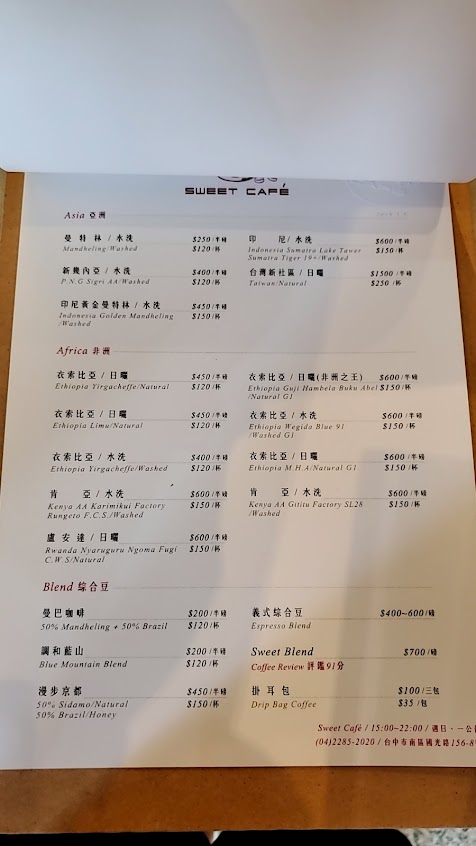 SWEET CAFÉ
Asia 亞洲
曼特林 / 水洗 $250/半磅
Mandheling/Washed $120/杯
新幾內亞 / 水洗 $400/半磅
P.N.G Sigri AA/Washed $120/杯
印尼黃金曼特林 / 水洗 $450/半磅
Indonesia Golden Mandheling $150/杯
/Washed
印 尼/ 水洗 $600/半磅
Indonesia Sumatra Lake Tawer $150/杯
Sumatra Tiger 19+/Washed
台灣新社區 / 日曬 $1500/半磅
Taiwan/Natural $250 /杯
Africa 非洲
衣索比亞 / 日曬 $450/半磅
Ethiopia Yirgacheffe/Natural $120/杯
衣索比亞 / 日曬 $450/半磅
Ethiopia Limu/Natural $120/杯
衣索比亞 / 水洗 $400/半磅
Ethiopia Yirgacheffe/Washed $120/杯
肯 亞 / 水洗 $600/半磅
Kenya AA Karimikui Factory $150/杯
Rungeto F.C.S./Washed
盧安達 / 日曬 $600/半磅
Rwanda Nyaruguru Ngoma Fugi $150/杯
C.W.S/Natural
衣索比亞 / 日曬(非洲之王) $600/半磅
Ethiopia Guji Hambela Buku Abel $150/杯
/Natural G1
衣索比亞 / 水洗 $600/半磅
Ethiopia Wegida Blue 91 $150/杯
/Washed G1
衣索比亞 / 日曬 $600/半磅
Ethiopia M.H.A/Natural G1 $150/杯
肯 亞 / 水洗 $600/半磅
Kenya AA Gititu Factory SL28 $150/杯
/Washed
Blend 綜合豆
曼巴咖啡 $200/半磅
50% Mandheling + 50% Brazil $120/杯
調和藍山 $200/半磅
Blue Mountain Blend $120/杯
漫步京都 $450/半磅
50% Sidamo/Natural $150/杯
50% Brazil/Honey
義式綜合豆 $400~600/磅
Espresso Blend
Sweet Blend $700/磅
Coffee Review 評鑑91分
掛耳包 $100/三包
Drip Bag Coffee $35 /包
Sweet Café / 15:00~22:00 / 週日、一公
(04)2285-2020 / 台中市南區國光路156-8